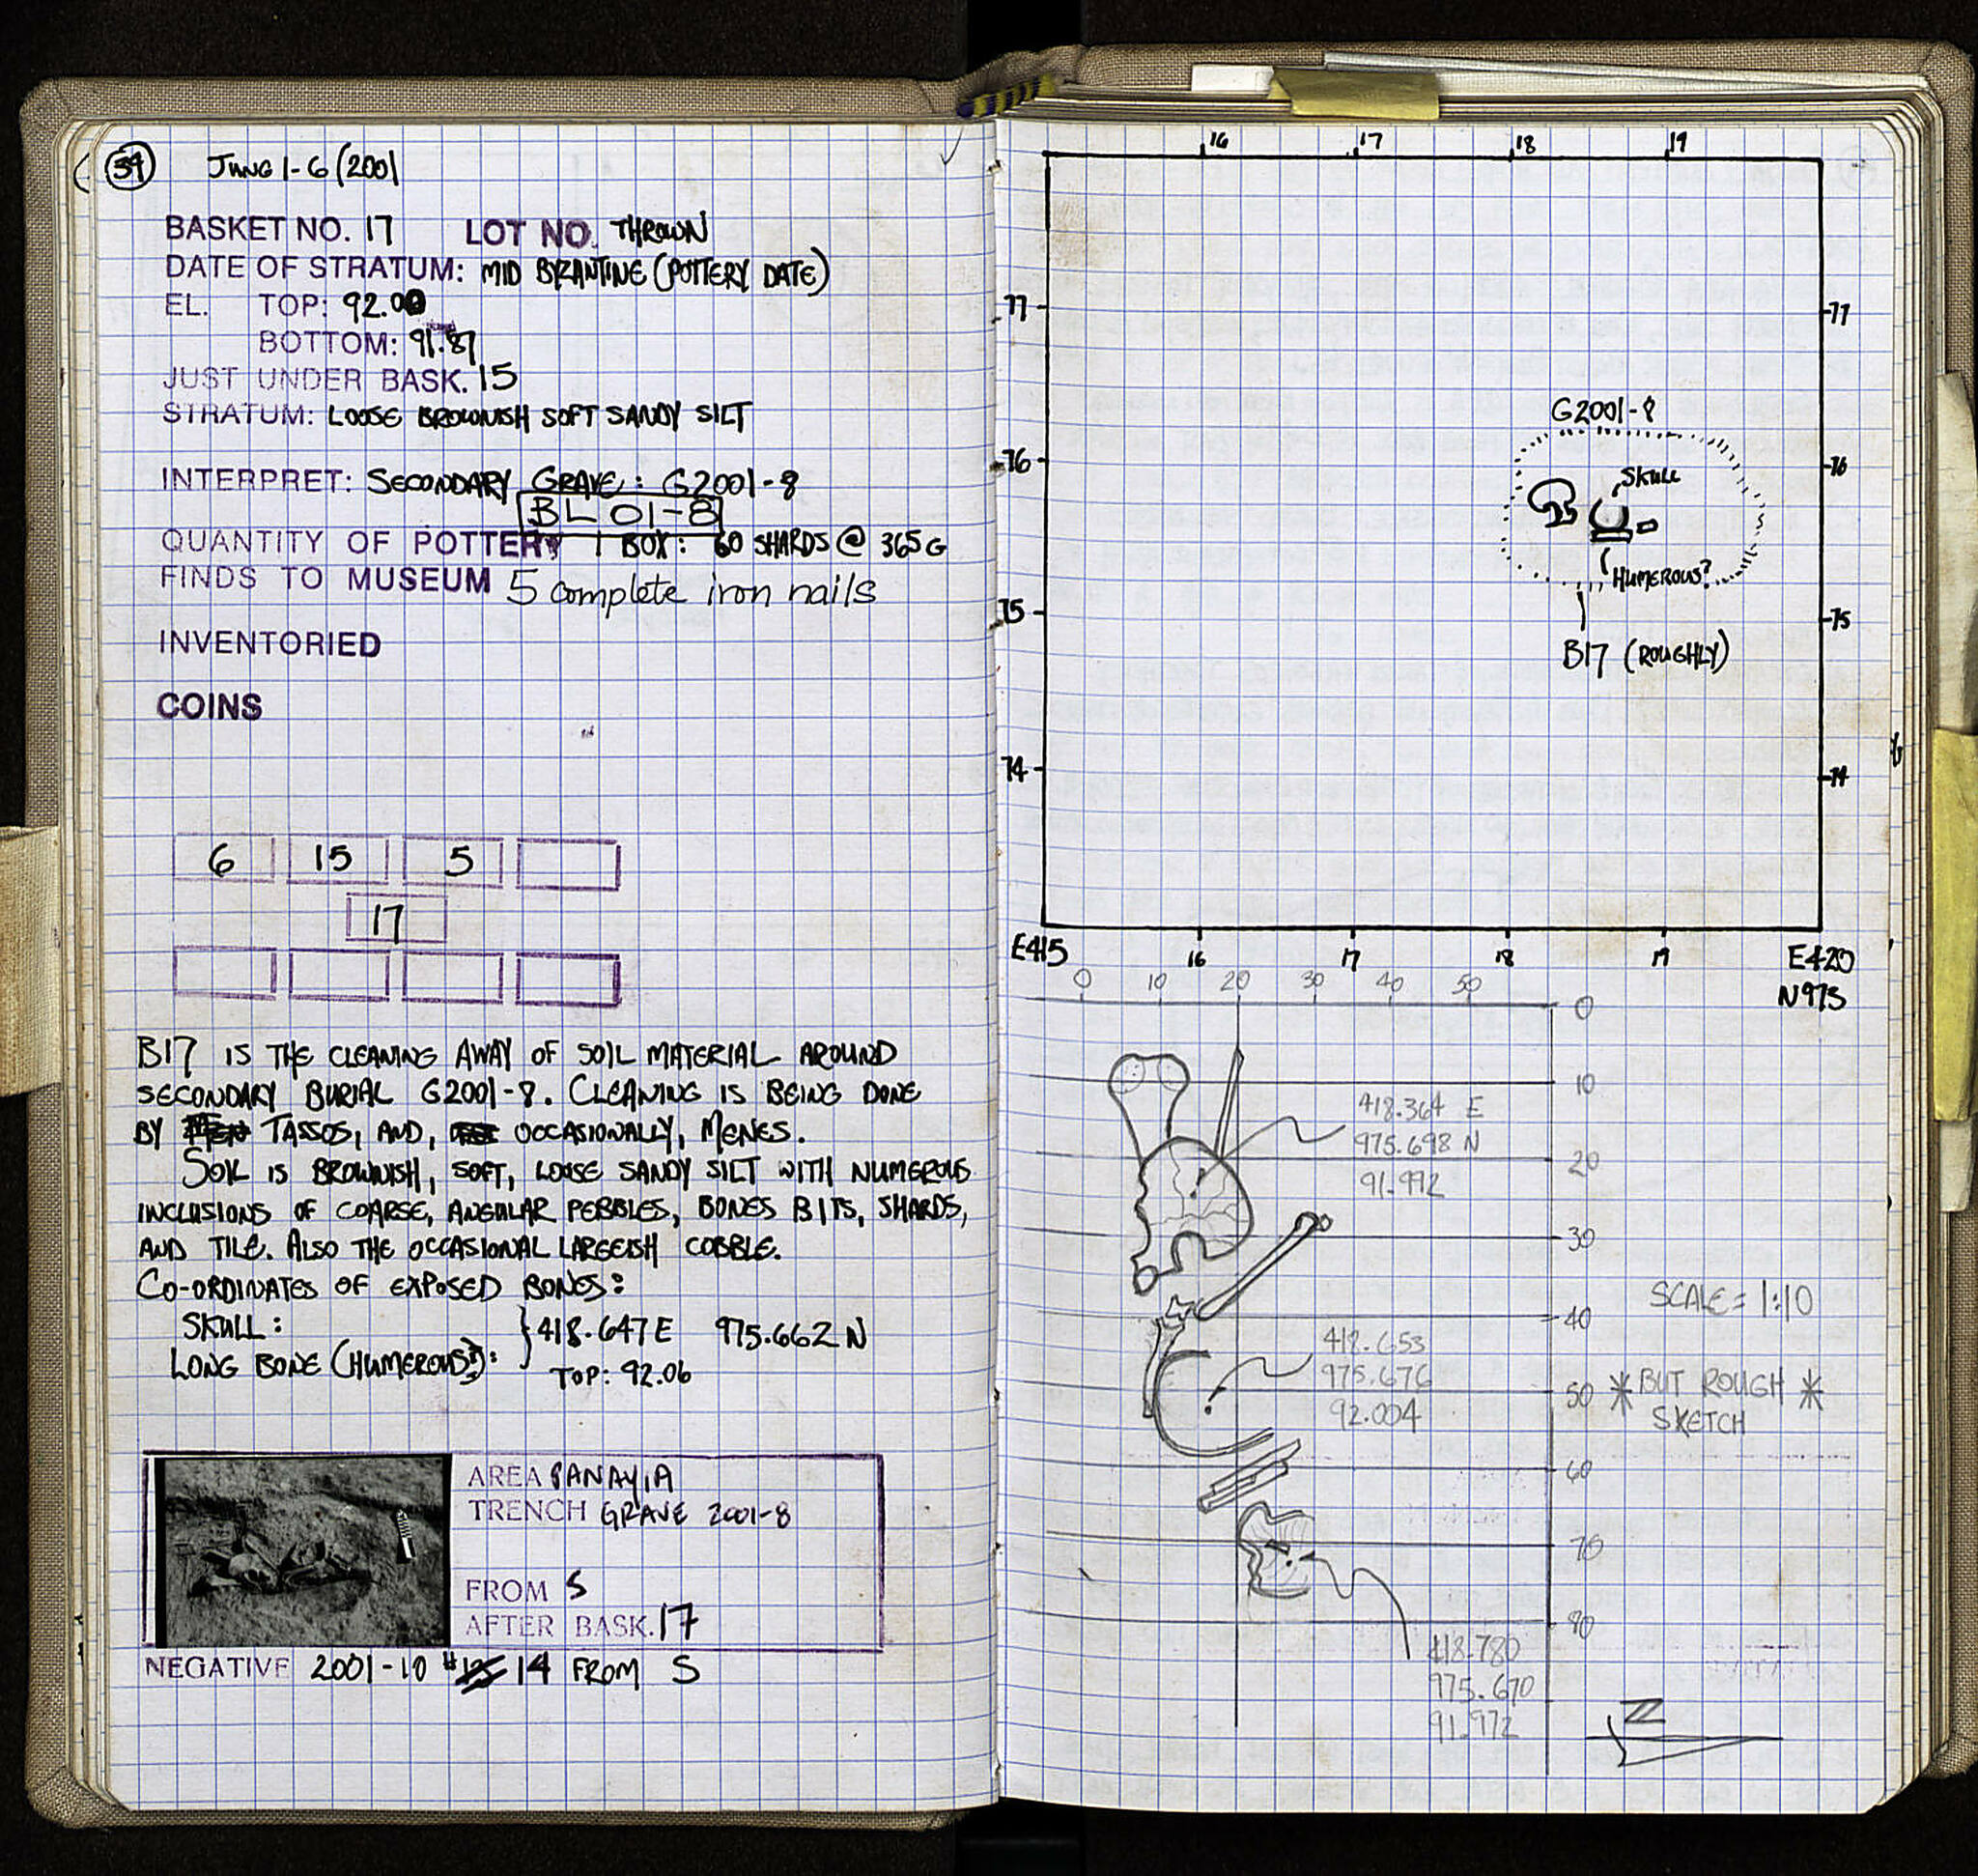 39 JUNE 1-6/2001
BASKET NO. 17 LOT NO. THROWN
DATE OF STRATUM: MID BYZANTINE (POTTERY DATE)
EL. TOP: 92.00
BOTTOM: 91.87
JUST UNDER BASK. 15
STRATUM: LOOSE BROWNISH SOFT SANDY SILT
INTERPRET: SECONDARY GRAVE: G2001-8
BL 01-8
QUANTITY OF POTTERY 1 BOX: 60 SHARDS @ 365G
FINDS TO MUSEUM 5 complete iron nails
INVENTORIED
COINS
6 15 5
17
B17 IS THE CLEANING AWAY OF SOIL MATERIAL AROUND
SECONDARY BURIAL G2001-8. CLEANING IS BEING DONE
BY TASSOS, AND, OCCASIONALLY, MENES.
SOIL IS BROWNISH, SOFT, LOOSE SANDY SILT WITH NUMEROUS
INCLUSIONS OF COARSE, ANGULAR PEBBLES, BONES BITS, SHARDS,
AND TILE. ALSO THE OCCASIONAL LARGEISH COBBLE.
CO-ORDINATES OF EXPOSED BONES:
SKULL:
LONG BONE (HUMEROUS?):
418.647 E 975.662 N
TOP: 92.06
AREA PANAYIA
TRENCH GRAVE 2001-8
FROM S
AFTER BASK. 17
NEGATIVE 2001-10 # 14 FROM S
16 17 18 19
77 77
G2001-8
76 76
SKULL
HUMEROUS?
75 75
B17 (ROUGHLY)
74 74
E415 16 17 18 19 E420
N973
0 10 20 30 40 50
0
10
418.364 E
975.698 N
91.992
20
30
SCALE = 1:10
40
418.653
975.676
92.004
50
* BUT ROUGH *
SKETCH
60
70
80
418.780
975.670
91.972
N